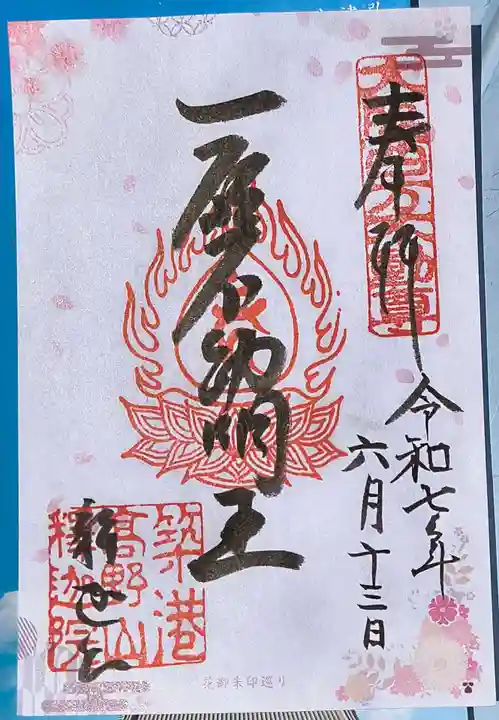 奉拝
令和七年
六月十三日
一願不動明王
築港
高野山
釋迦院
釈迦院
花御朱印巡り